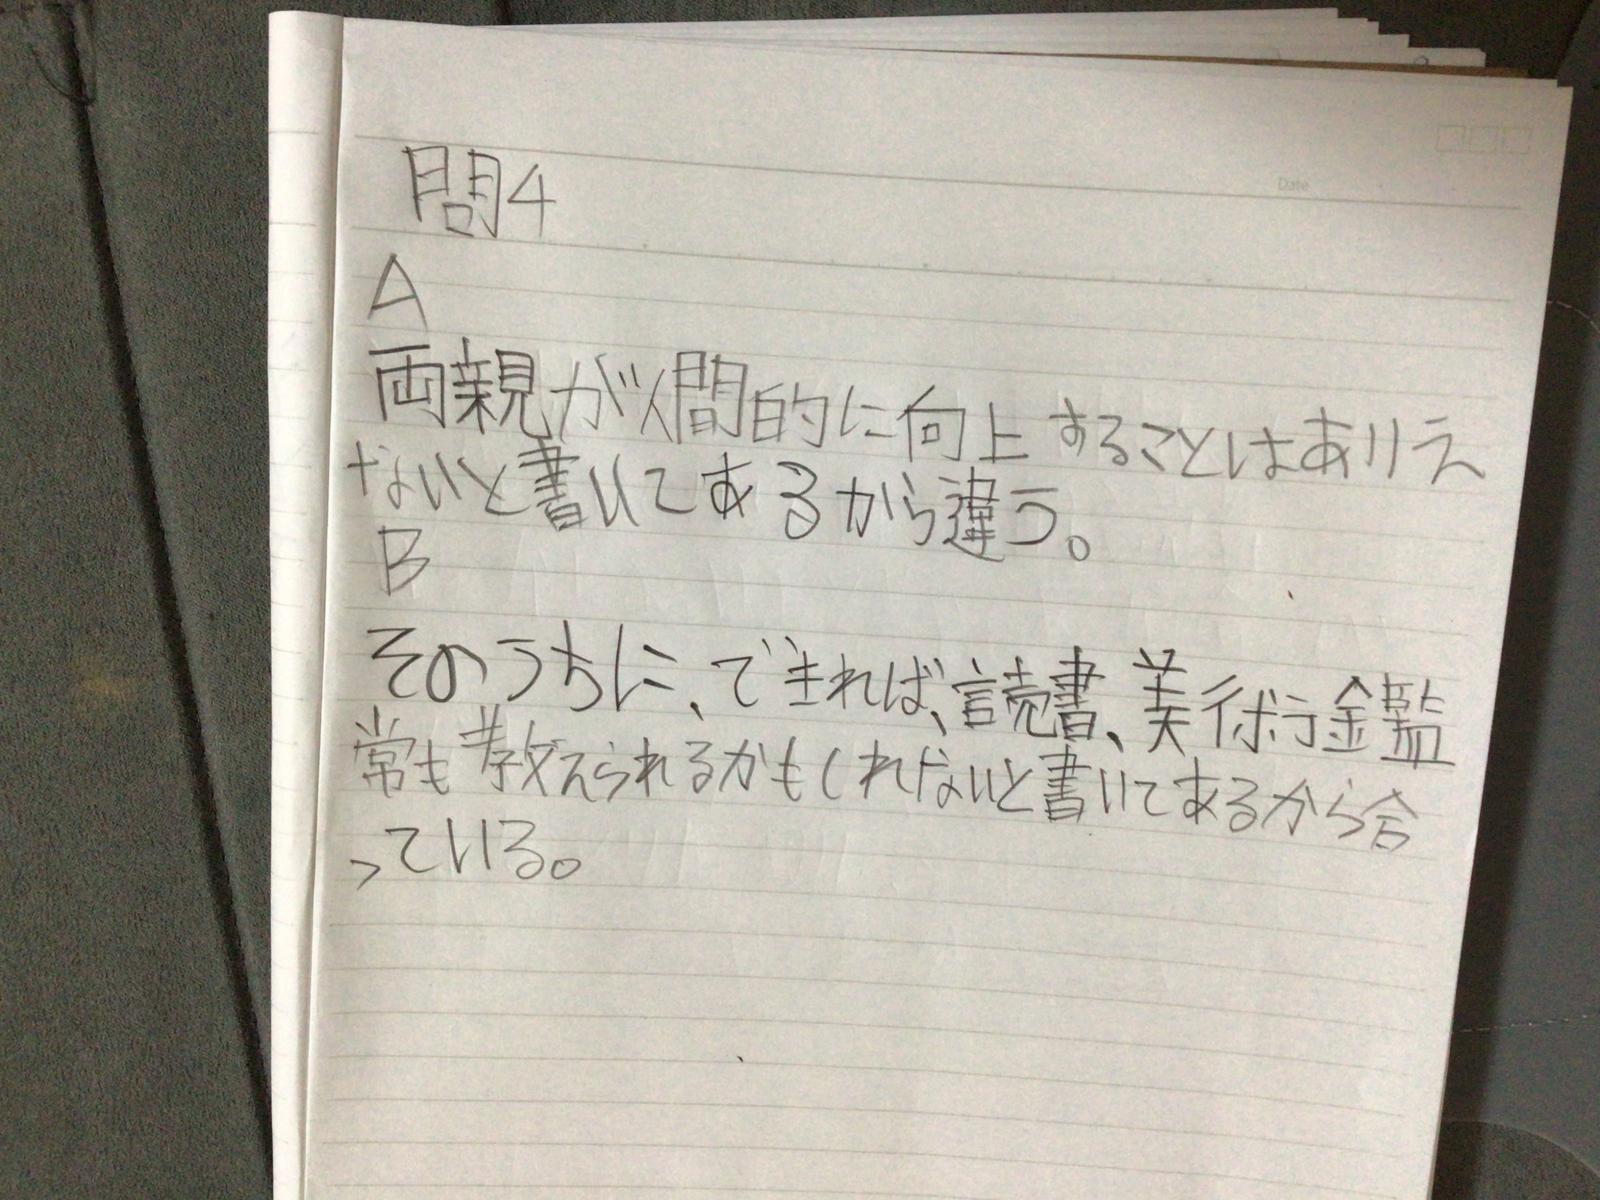 Date
問4
A
両親が人間的に向上することはありえ
ないと書いてあるから違う。
B
そのうちに、できれば、読書、美術鑑
常も教えられるかもしれないと書いてあるから合
っている。